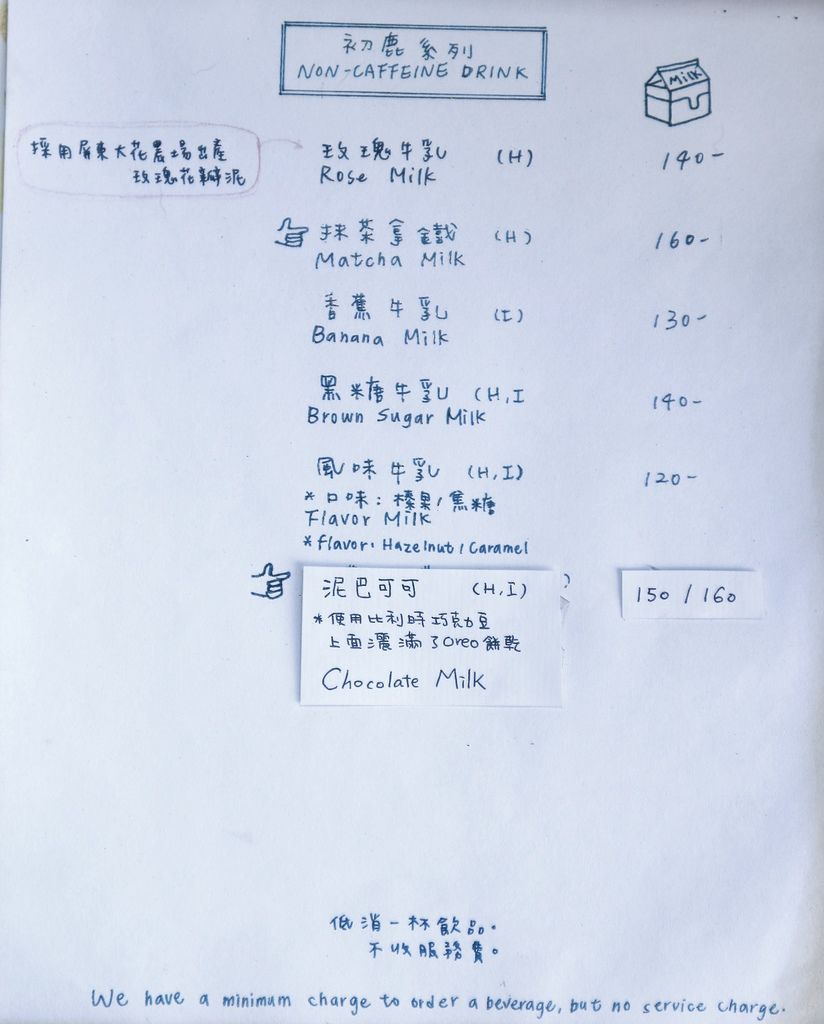 初鹿系列
NON-CAFFEINE DRINK
MilK
採用屏東大花農場出產
玫瑰花瓣泥
玫瑰牛乳 (H) 140-
Rose Milk
抹茶拿鐵 (H) 160-
Matcha Milk
香蕉牛乳 (I) 130-
Banana Milk
黑糖牛乳 (H,I 140-
Brown Sugar Milk
風味牛乳 (H,I) 120-
*口味:榛果/焦糖
Flavor Milk
*flavor: Hazelnut/Caramel
泥巴可可 (H,I) 150/160
*使用比利時巧克力豆
上面灑滿了Oreo餅乾
Chocolate Milk
低消一杯飲品。
不收服務費。
We have a minimum charge to order a beverage, but no service charge.